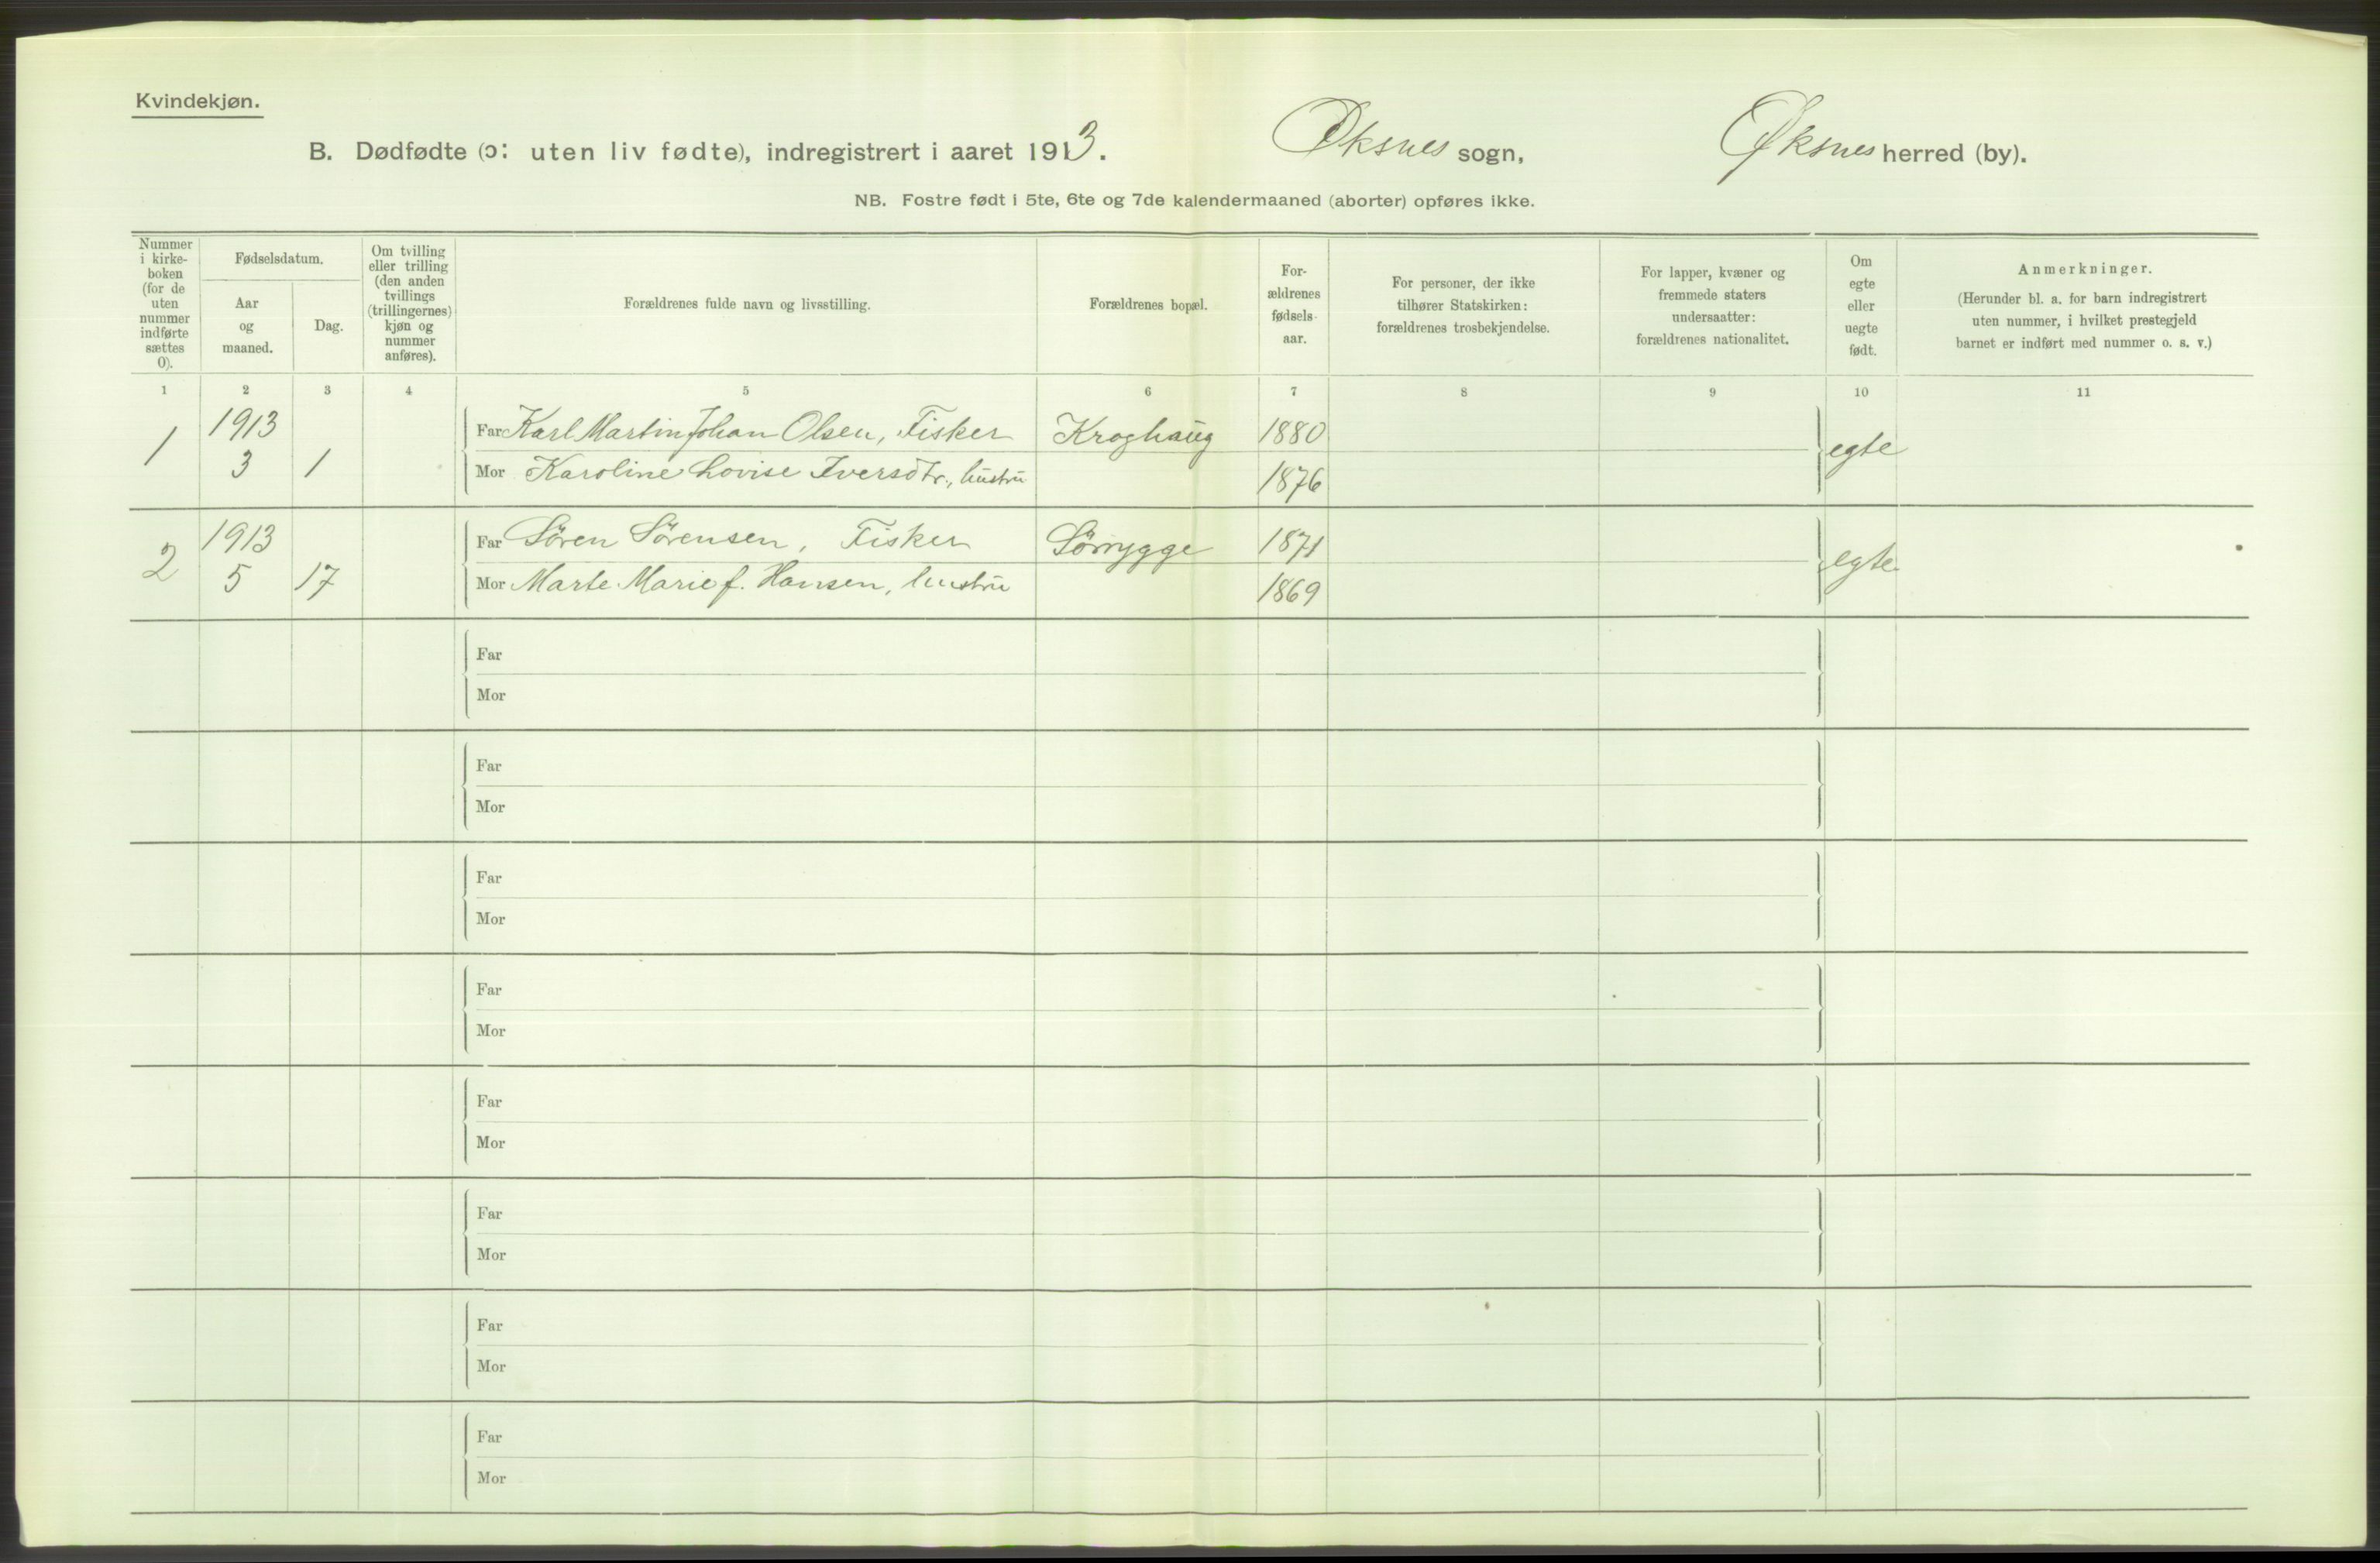 Kvindekjøn.
B. Dødfødte (ɔ: uten liv fødte), indregistrert i aaret 1913. Øksnes sogn, Øksnes herred (by).
NB. Fostre født i 5te, 6te og 7de kalendermaaned (aborter) opføres ikke.
Nummer
i kirke-
boken
(for de
uten
nummer
indførte
sættes
0).
Fødselsdatum.
Aar
og
maaned.
Dag.
Om tvilling
eller trilling
(den anden
tvillings
(trillingernes)
kjøn og
nummer
anføres).
Forældrenes fulde navn og livsstilling.
Forældrenes bopæl.
For-
ældrenes
fødsels-
aar.
For personer, der ikke
tilhører Statskirken:
forældrenes trosbekjendelse.
For lapper, kvæner og
fremmede staters
undersaatter:
forældrenes nationalitet.
Om
egte
eller
uegte
født.
Anmerkninger.
(Herunder bl. a. for barn indregistrert
uten nummer, i hvilket prestegjeld
barnet er indført med nummer o. s. v.)
1 2 3 4 5 6 7 8 9 10 11
1 1913 3 1
Far Karl Martin Johan Olsen, Fisker Kroghaug 1880 egte
Mor Karoline Lovise Iversdtr., hustru 1876
2 1913 5 17
Far Sören Sörensen, Fisker Sörrygge 1871 egte
Mor Marte Marie f. Hansen, hustru 1869
Far
Mor
Far
Mor
Far
Mor
Far
Mor
Far
Mor
Far
Mor
Far
Mor
Far
Mor